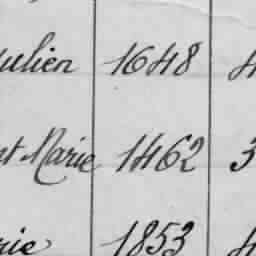 ulien 1648 4
nt Marie 1462 3
rie 1853 4